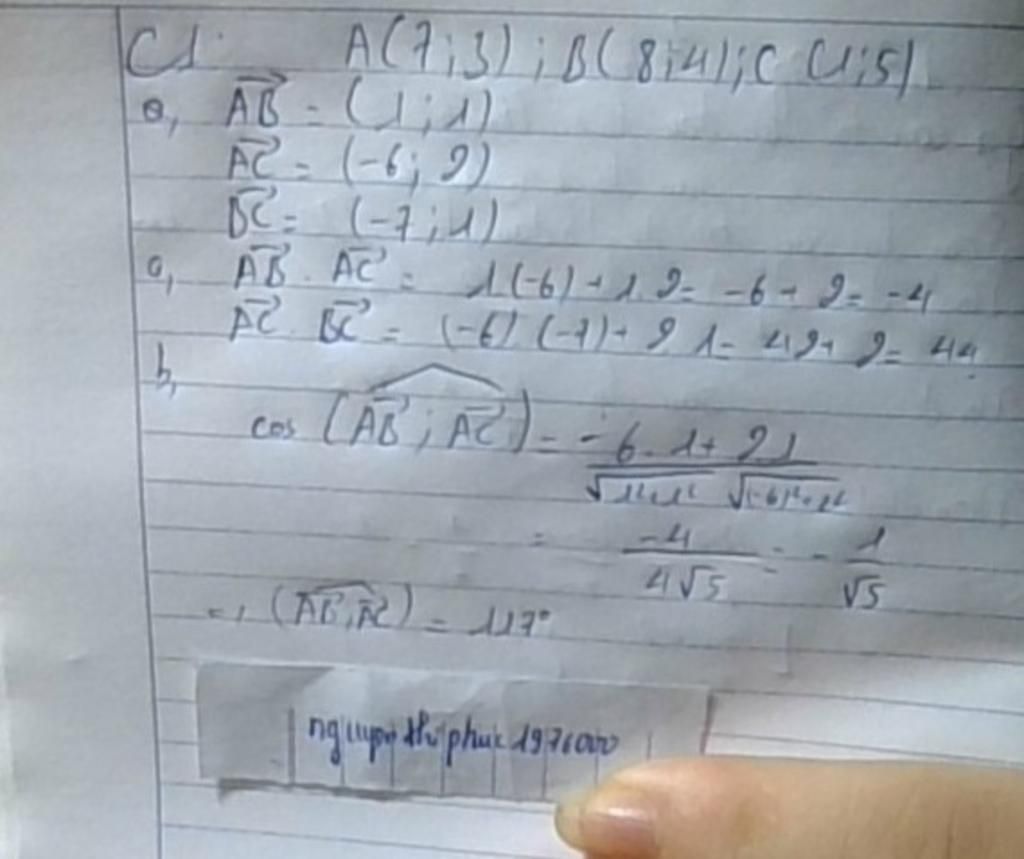 C1: A(7;3);B(8;4);C(1;5)
a, AB = (1;1)
AC = (-6;2)
BC = (-7;1)
a, AB . AC = 1(-6)+1.2= -6+2= -4
AC . BC = (-6)(-7)+2.1= 42+2= 44
b,
cos (AB; AC) = -6.1+2.1
√1²+1² √(-6)²+2²
= -4 = - 1
4√5 √5
=> (AB,AC) = 117°
phuc 1976000